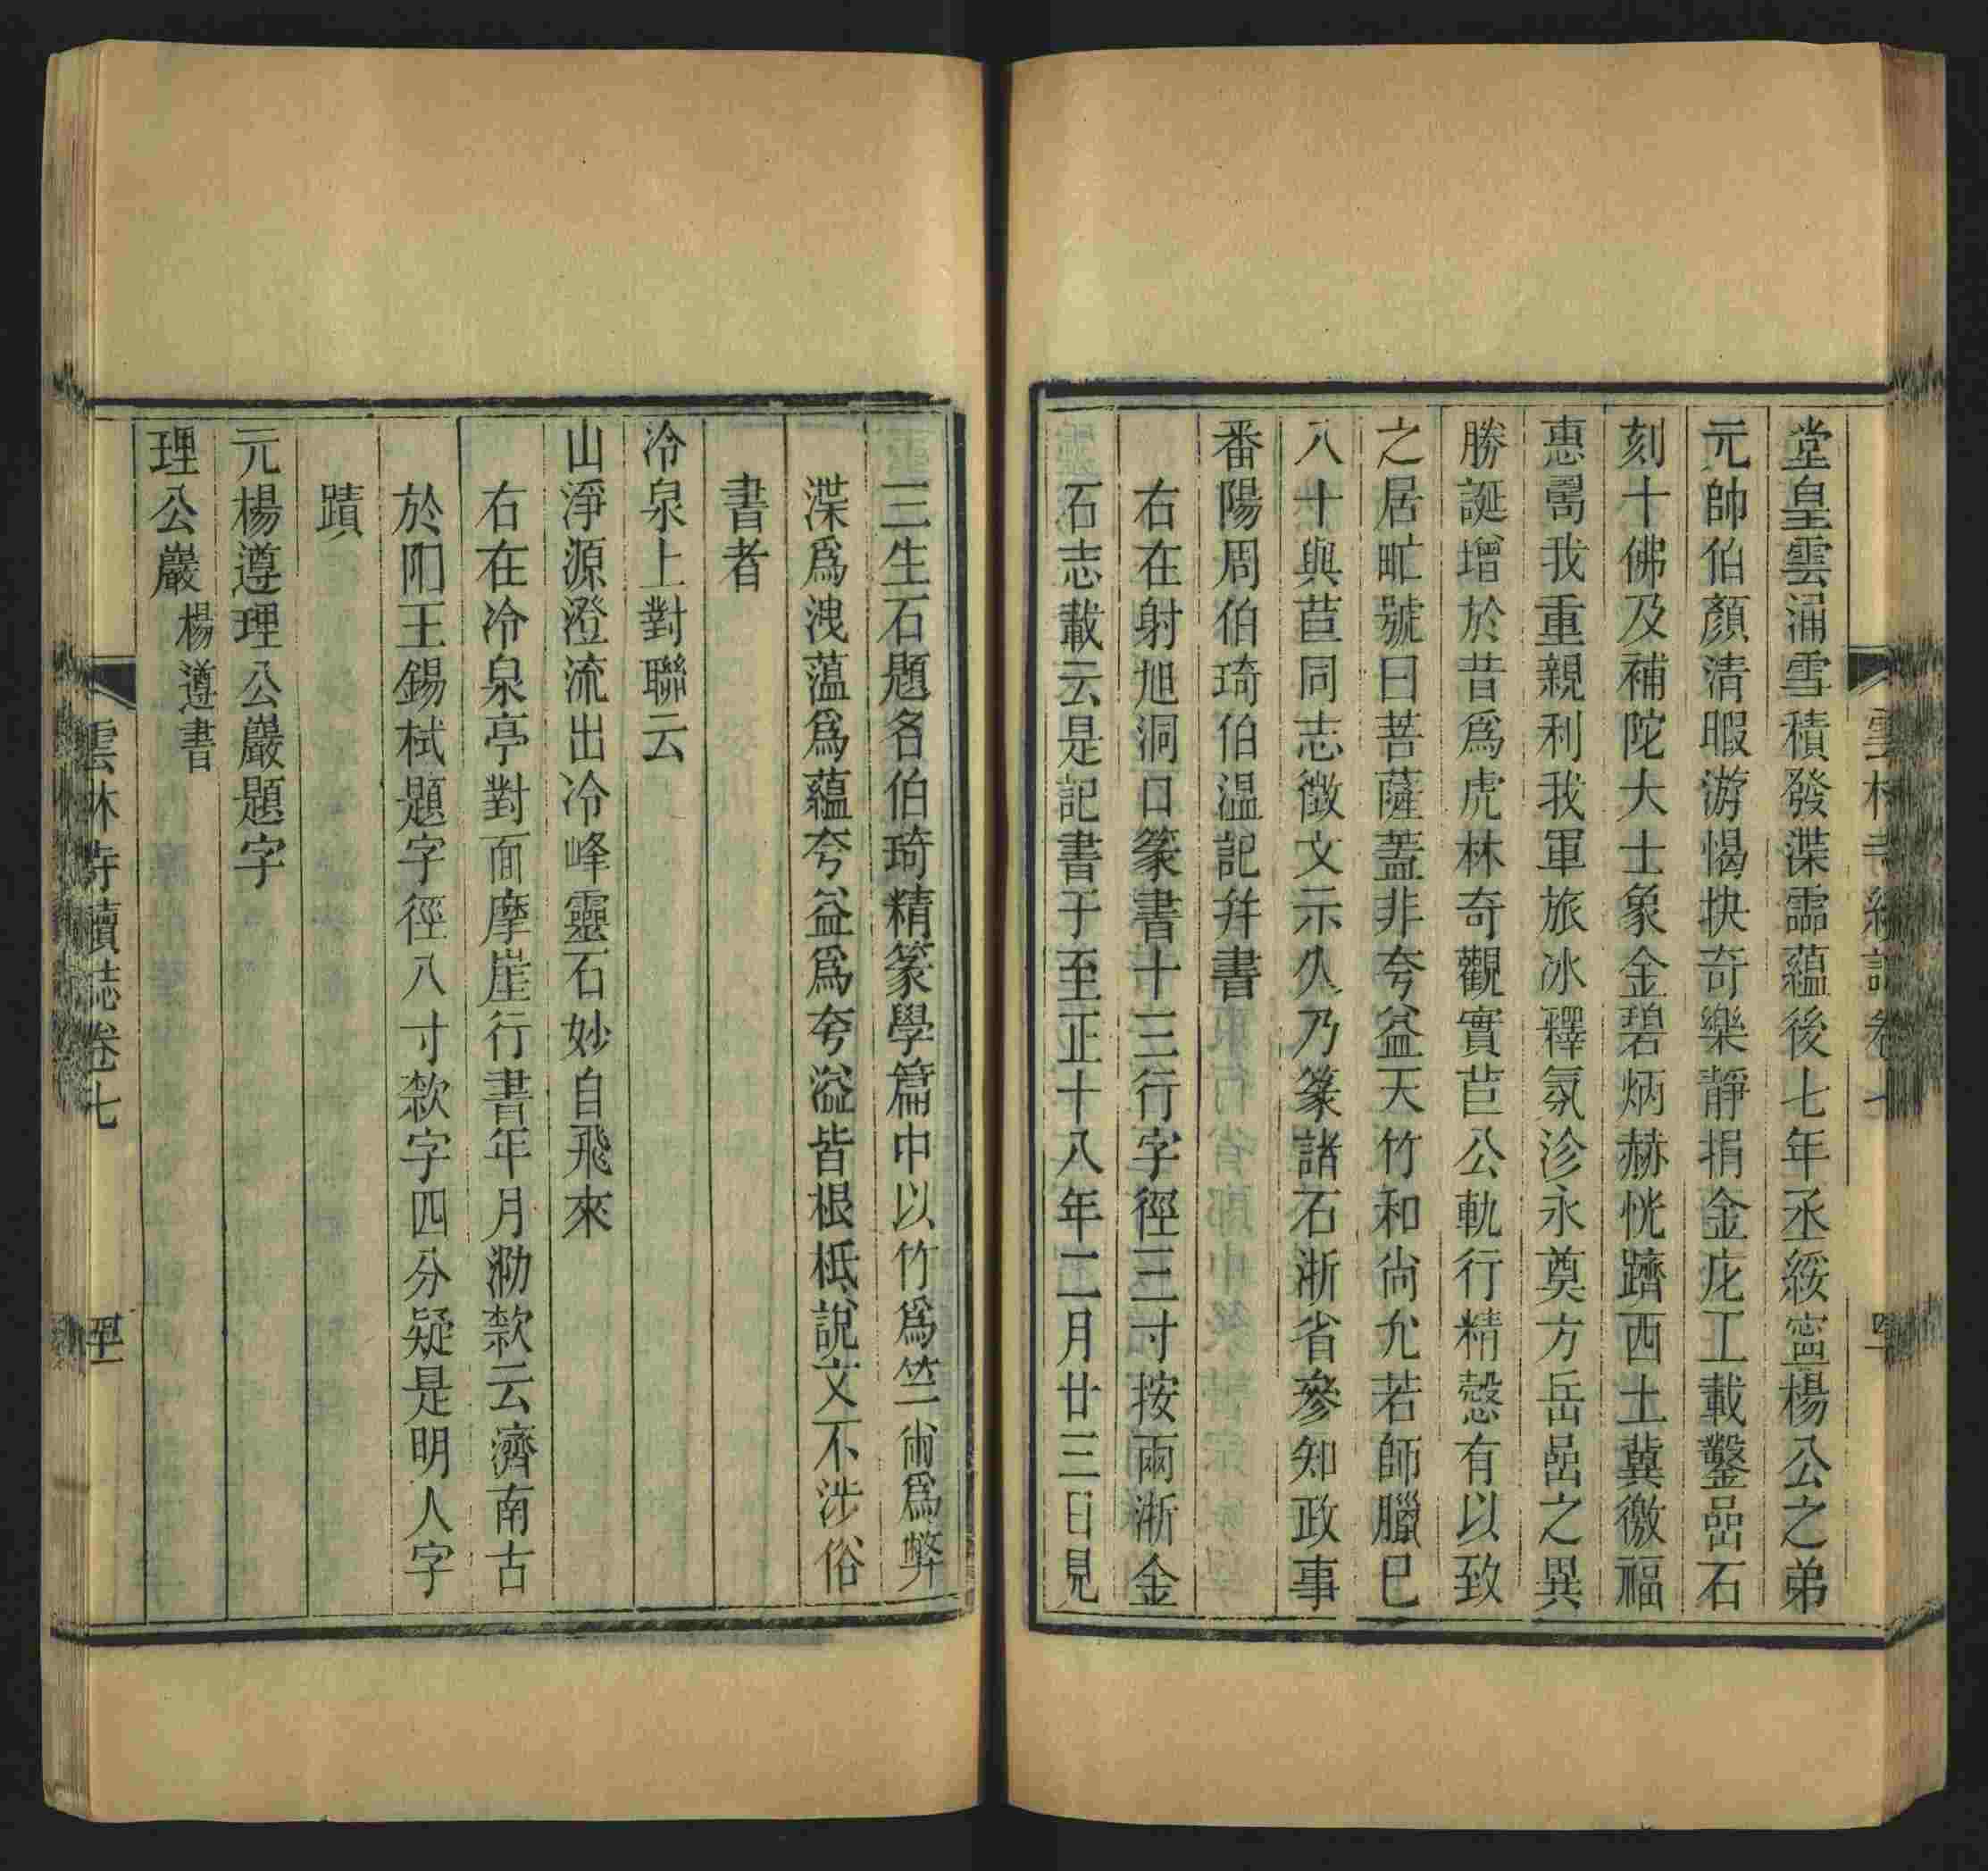 堂皇雲涌雪積發渫霝蘊後七年丞綏寍楊公之弟
元帥伯顏清暇游愒抉奇樂靜捐金庀工載鑿嵒石
刻十佛及補陀大士象金碧炳赫恍躋西土冀徼福
惠噩我重親利我軍旅冰釋氛沴永奠方岳嵒之異
勝誕增於昔爲虎林奇觀實苣公軌行精慤有以致
之居甿號曰菩薩蓋非夸益天竹和尚允若師臘巳
八十與苣同志徵文示久乃篆諸石浙省參知政事
番陽周伯琦伯温記并書
右在射旭洞口篆書十三行字徑三寸按兩浙金
石志載云是記書于至正十八年二月廿三日見
三生石題名伯琦精篆學篇中以竹爲竺㡀爲弊
渫爲洩薀爲蘊夸益爲夸溢皆根柢說文不涉俗
書者
冷泉上對聯云
山淨源澄流出冷峰靈石妙自飛來
右在冷泉亭對面摩崖行書年月泐欵云濟南古
於阝王錫栻題字徑八寸欵字四分疑是明人字
蹟
元楊遵理公巖題字
理公巖 楊遵書
雲林寺續誌卷七